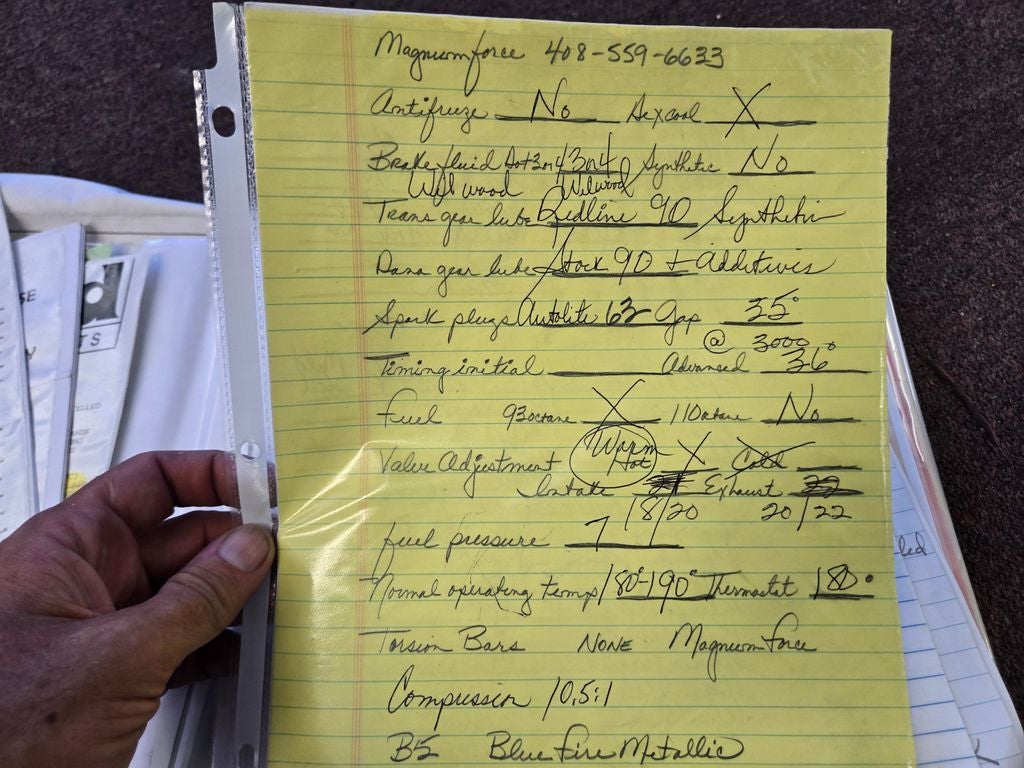 Magnumforce 408-559-6633
Antifreeze No Sexcool X
Brake fluid Dot 3 or 4 3 or 4 Synthetic No
Wilwood Wilwood
Trans gear lube Redline 90 Synthetic
Dana gear lube Stock 90 + Additives
Spark plugs Autolite 63 Gap 35°
@ 3000
Timing initial Advanced 36°
Fuel 93octane X 110octane No
Valve Adjustment Warm Hot X Cold
Intake Exhaust
18/20 20/22
fuel pressure 7
Normal operating temp 180°-190° Thermostat 180°
Torsion Bars NONE Magnum Force
Compression 10.5:1
B5 Blue Fire Metallic
SE
TS
led